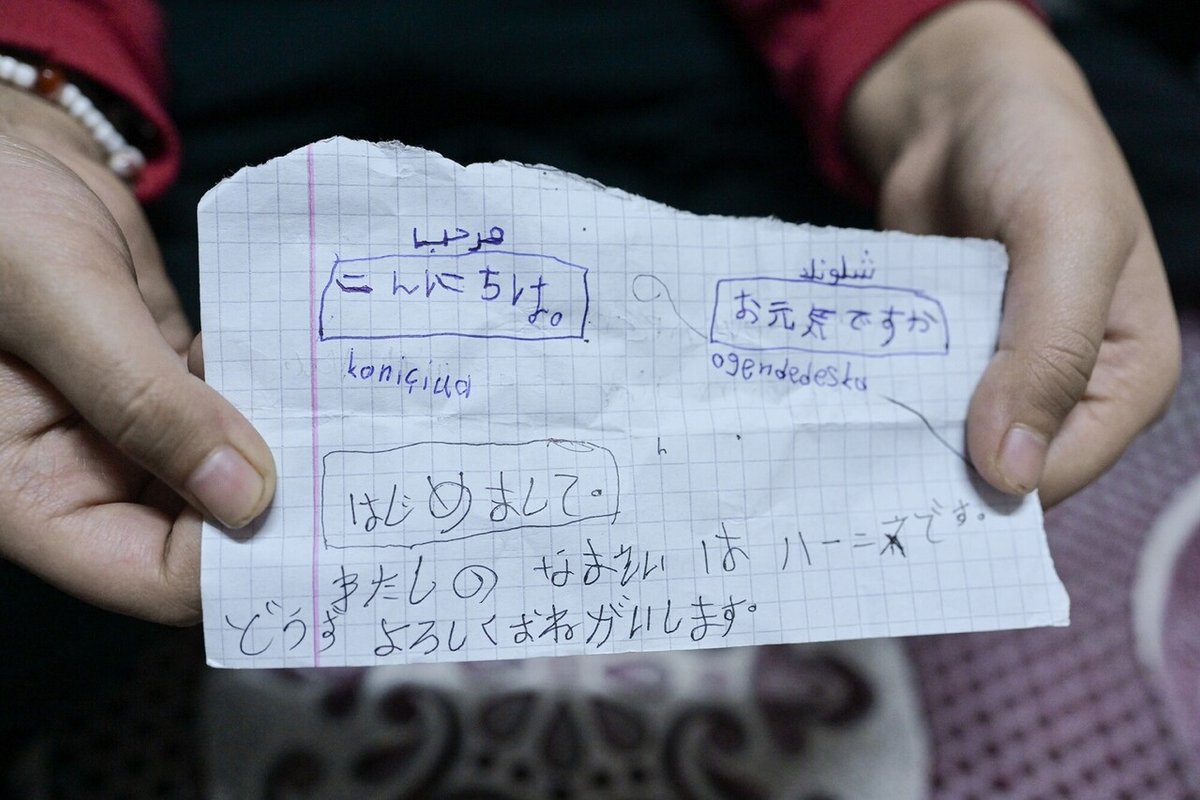 مرحبا
こんにちは。
koniçiua
شلونك
お元気ですか
ogendedeska
はじめまして。
わたしの なまえい は です。
どうず よろしくおねがいします。